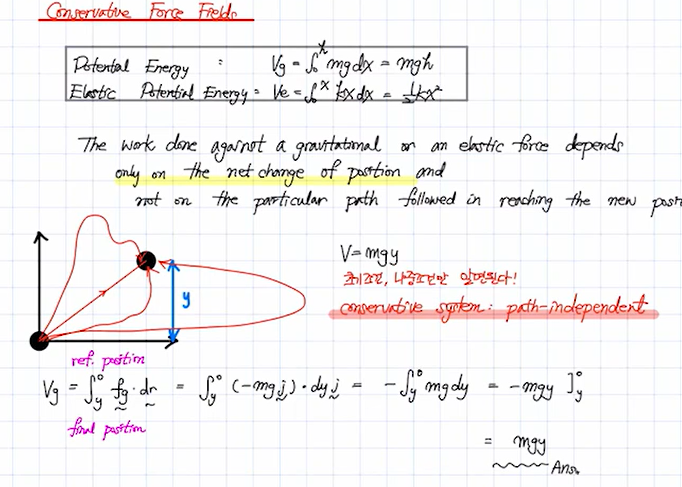 Conservative Force Fields
Potential Energy : Vg = ∫₀ʰ mg dx = mgh
Elastic Potential Energy = Ve = ∫₀ˣ kx dx = ½kx²
The work done against a gravitational or an elastic force depends
only on the net change of position and
not on the particular path followed in reaching the new posit
V = mgy
초기조건, 나중조건만 알면된다!
conservative system : path-independent
y
ref. position
Vg = ∫_y^0 fg · dr = ∫_y^0 (-mg j) · dy j = -∫_y^0 mg dy = -mgy ]_y^0
final position
= mgy
Ans.